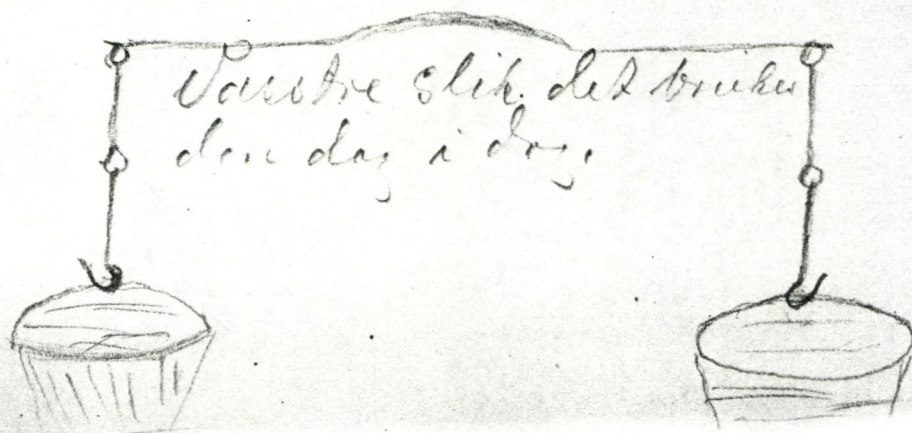 Vasstre slik det bruker
den dag i dag.